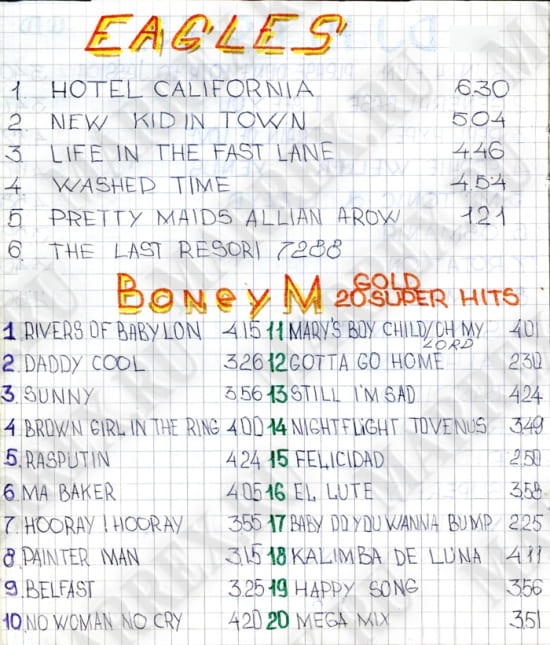 EAGLES
1. HOTEL CALIFORNIA 6.30
2. NEW KID IN TOWN 5.04
3. LIFE IN THE FAST LANE 4.46
4. WASHED TIME 4.54
5. PRETTY MAIDS ALLIAN AROW 1.21
6. THE LAST RESORI 7288
Boney M GOLD
20 SUPER HITS
1 RIVERS OF BABYLON 4.15 11 MARY'S BOY CHILD/OH MY LORD 4.01
2. DADDY COOL 3.26 12 GOTTA GO HOME 2.30
3. SUNNY 3.56 13 STILL I'M SAD 4.24
4 BROWN GIRL IN THE RING 4.00 14 NIGHTFLIGHT TO VENUS 3.49
5. RASPUTIN 4.24 15 FELICIDAD 2.50
6 MA BAKER 4.05 16 EL LUTE 3.58
7. HOORAY! HOORAY 3.55 17 BABY DO YOU WANNA BUMP 2.25
8. PAINTER MAN 3.15 18 KALIMBA DE LUNA 4.11
9. BELFAST 3.25 19 HAPPY SONG 3.56
10. NO WOMAN NO CRY 4.20 20 MEGA MIX 3.51
MARREX.RU